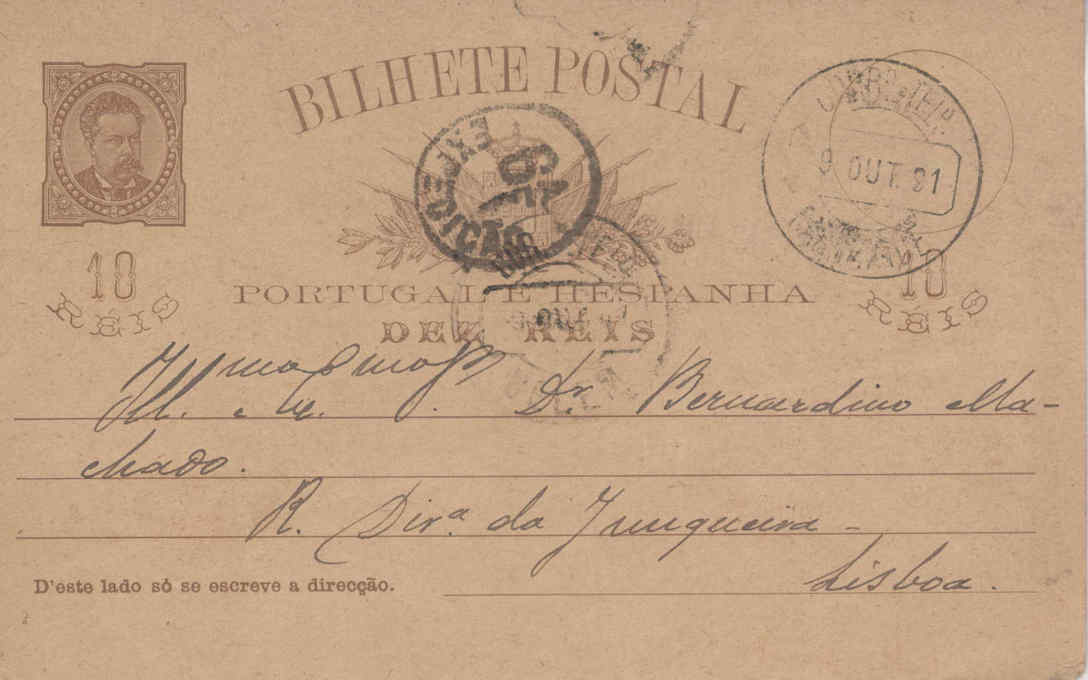 BILHETE POSTAL
9 OUT. 91
EXPEDIÇÃO
10
RÉIS
10
RÉIS
PORTUGAL E HESPANHA
DEZ RÉIS
Ill.mo Ex.mo Dr. Bernardino Ma-
chado.
R. Dir.a da Junqueira -
Lisboa.
D'este lado só se escreve a direcção.